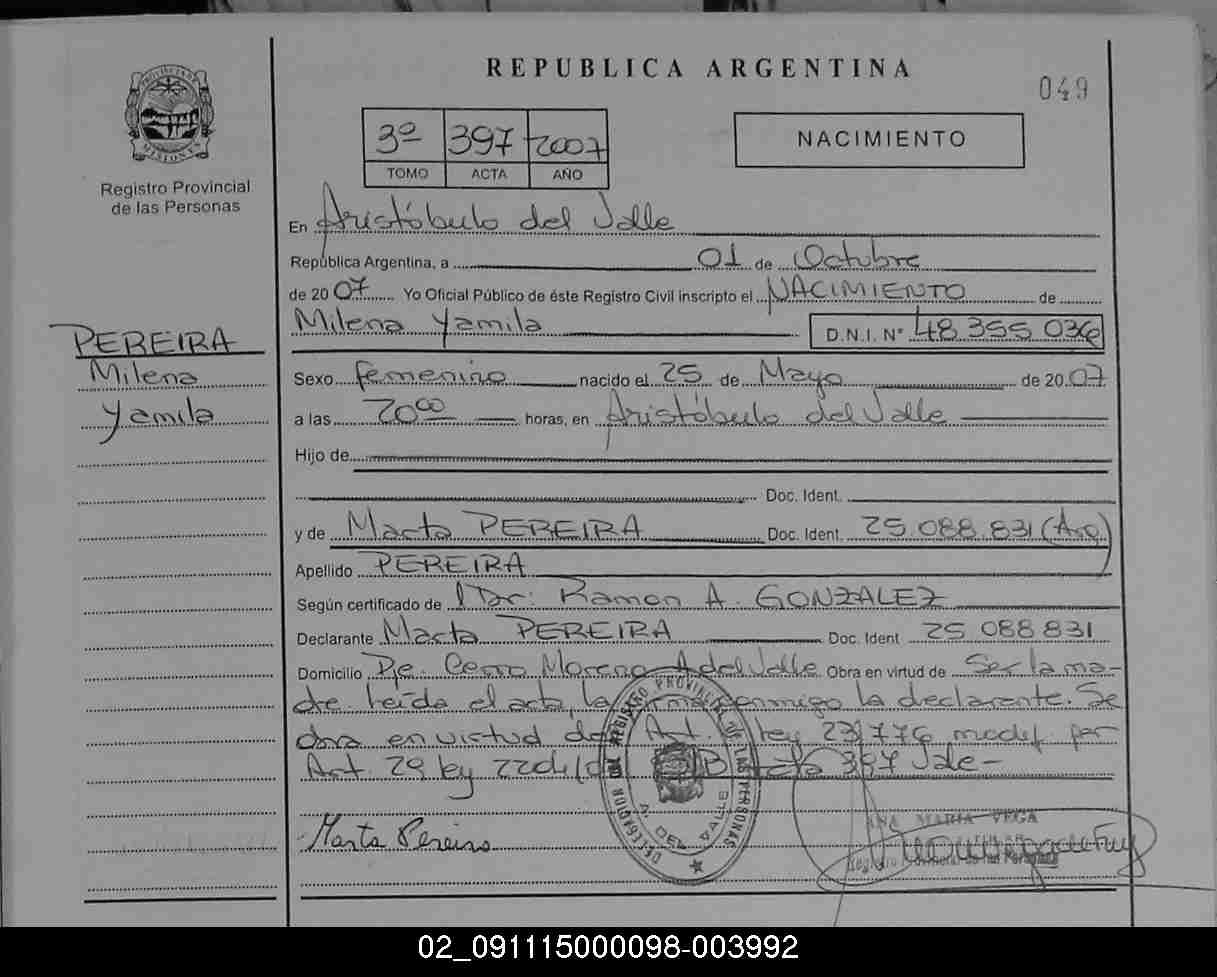 REPUBLICA ARGENTINA
049
PROVINCIA DE MISIONES
Registro Provincial
de las Personas
3º 397 2007
TOMO ACTA AÑO
NACIMIENTO
En Aristóbulo del Valle
República Argentina, a 01 de Octubre
de 2007 Yo Oficial Público de éste Registro Civil inscripto el NACIMIENTO de
Milena Yamila D.N.I. Nº 48.355.036
PEREIRA
Milena
Yamila
Sexo femenino nacido el 25 de Mayo de 2007
a las 20⁰⁰ horas, en Aristóbulo del Valle
Hijo de
Doc. Ident.
y de Marta PEREIRA Doc. Ident. 25.088.831 (Arg.)
Apellido PEREIRA
Según certificado de Dr: Ramon A. GONZALEZ
Declarante Marta PEREIRA Doc. Ident 25 088 831
Domicilio Pje. Cerro Moreno A del Valle Obra en virtud de Ser la ma-
dre leída el acta, la firma conmigo la declarante. Se
obra en virtud del Art. ley 23/776 modif. por
Art. 29 ley 397 Vale-
DELEGACION DEL REGISTRO PROVINCIAL DE LAS PERSONAS
A. DEL VALLE
Marta Pereira
ANA MARIA VEGA
TITULAR
Registro Provincial de las Personas
02_091115000098-003992